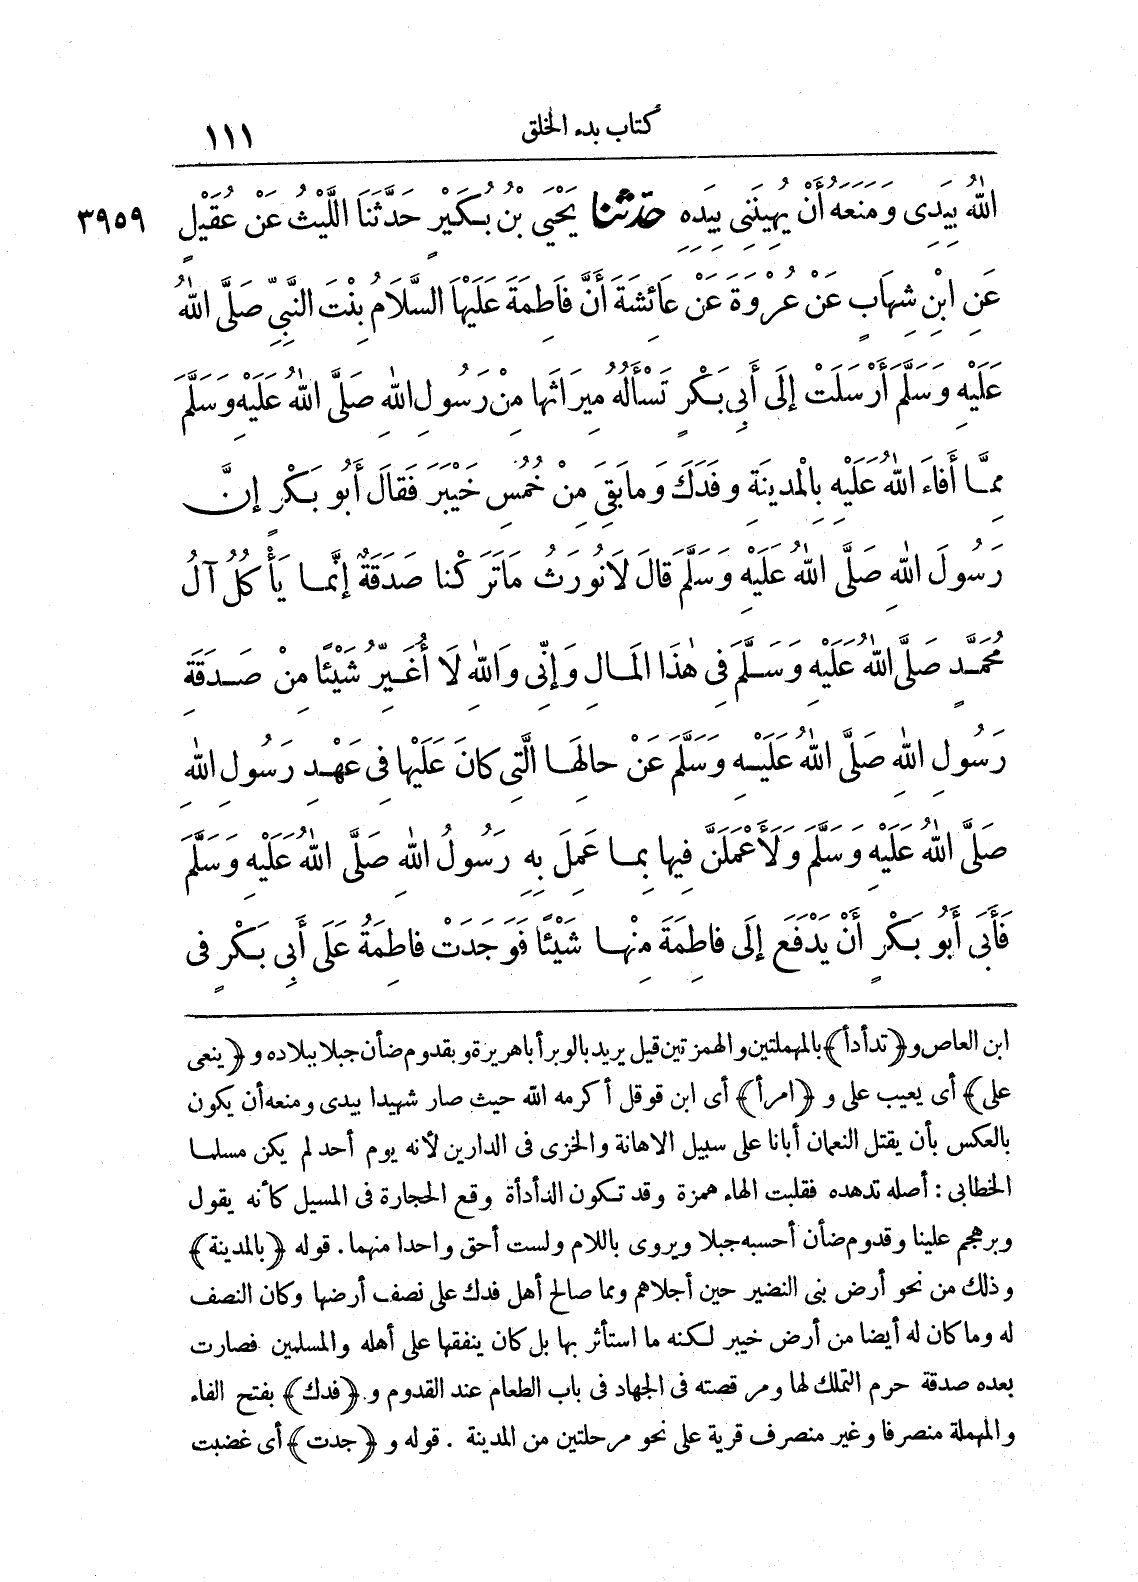 كتاب بدء الخلق ١١١
اللّٰهُ بِيَدِى وَمَنَعَهُ أَنْ يُهِينَنِى بِيَدِهِ حدثنا يَحْيَى بْنُ بُكَيْرٍ حَدَّثَنَا اللَّيْثُ عَنْ عُقَيْلٍ ٣٩٥٩
عَنِ ابْنِ شِهَابٍ عَنْ عُرْوَةَ عَنْ عَائِشَةَ أَنَّ فَاطِمَةَ عَلَيْهَا السَّلَامُ بِنْتَ النَّبِيِّ صَلَّى اللّٰهُ
عَلَيْهِ وَسَلَّمَ أَرْسَلَتْ إِلَى أَبِى بَكْرٍ تَسْأَلُهُ مِيرَاثَهَا مِنْ رَسُولِ اللّٰهِ صَلَّى اللّٰهُ عَلَيْهِ وَسَلَّمَ
مِمَّا أَفَاءَ اللّٰهُ عَلَيْهِ بِالْمَدِينَةِ وَفَدَكَ وَمَا بَقِيَ مِنْ خُمُسِ خَيْبَرَ فَقَالَ أَبُو بَكْرٍ إِنَّ
رَسُولَ اللّٰهِ صَلَّى اللّٰهُ عَلَيْهِ وَسَلَّمَ قَالَ لَا نُورَثُ مَا تَرَكْنَا صَدَقَةٌ إِنَّمَا يَأْكُلُ آلُ
مُحَمَّدٍ صَلَّى اللّٰهُ عَلَيْهِ وَسَلَّمَ فِى هٰذَا الْمَالِ وَإِنِّى وَاللّٰهِ لَا أُغَيِّرُ شَيْئًا مِنْ صَدَقَةِ
رَسُولِ اللّٰهِ صَلَّى اللّٰهُ عَلَيْهِ وَسَلَّمَ عَنْ حَالِهَا الَّتِى كَانَ عَلَيْهَا فِى عَهْدِ رَسُولِ اللّٰهِ
صَلَّى اللّٰهُ عَلَيْهِ وَسَلَّمَ وَلَأَعْمَلَنَّ فِيهَا بِمَا عَمِلَ بِهِ رَسُولُ اللّٰهِ صَلَّى اللّٰهُ عَلَيْهِ وَسَلَّمَ
فَأَبَى أَبُو بَكْرٍ أَنْ يَدْفَعَ إِلَى فَاطِمَةَ مِنْهَا شَيْئًا فَوَجَدَتْ فَاطِمَةُ عَلَى أَبِى بَكْرٍ فِى
ابن العاص و ﴿تدأدأ﴾ بالمهملتين والهمزتين قيل يريد بالوبر أبا هريرة وبقدوم ضأن جبلا ببلاده و ﴿ينعى
على﴾ أى يعيب على و ﴿امرأ﴾ أى ابن قوقل أكرمه الله حيث صار شهيدا بيدى ومنعه أن يكون
بالعكس بأن يقتل النعمان أبانا على سبيل الاهانة والخزى فى الدارين لأنه يوم أحد لم يكن مسلما
الخطابى : أصله تدهده فقلبت الهاء همزة وقد تكون الدأدأة وقع الحجارة فى المسيل كأنه يقول
وبرهجم علينا وقدوم ضأن أحسبه جبلا ويروى باللام ولست أحق واحدا منهما . قوله ﴿بالمدينة﴾
وذلك من نحو أرض بنى النضير حين أجلاهم ومما صالح أهل فدك على نصف أرضها وكان النصف
له وما كان له أيضا من أرض خيبر لكنه ما استأثر بها بل كان ينفقها على أهله والمسلمين فصارت
بعده صدقة حرم التملك لها ومر قصته فى الجهاد فى باب الطعام عند القدوم و ﴿فدك﴾ بفتح الفاء
والمهملة منصرفا وغير منصرف قرية على نحو مرحلتين من المدينة . قوله و ﴿جدت﴾ أى غضبت